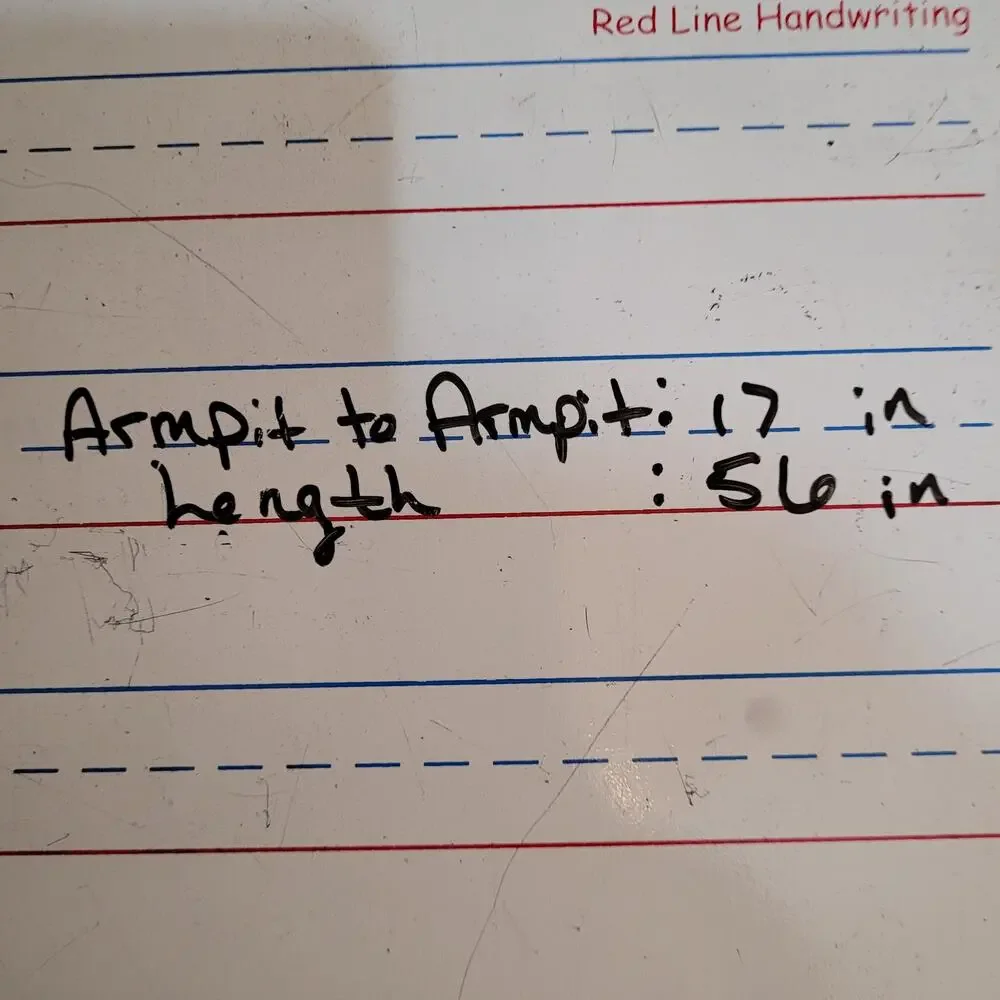 Red Line Handwriting
Armpit to Armpit: 17 in
Length : 56 in